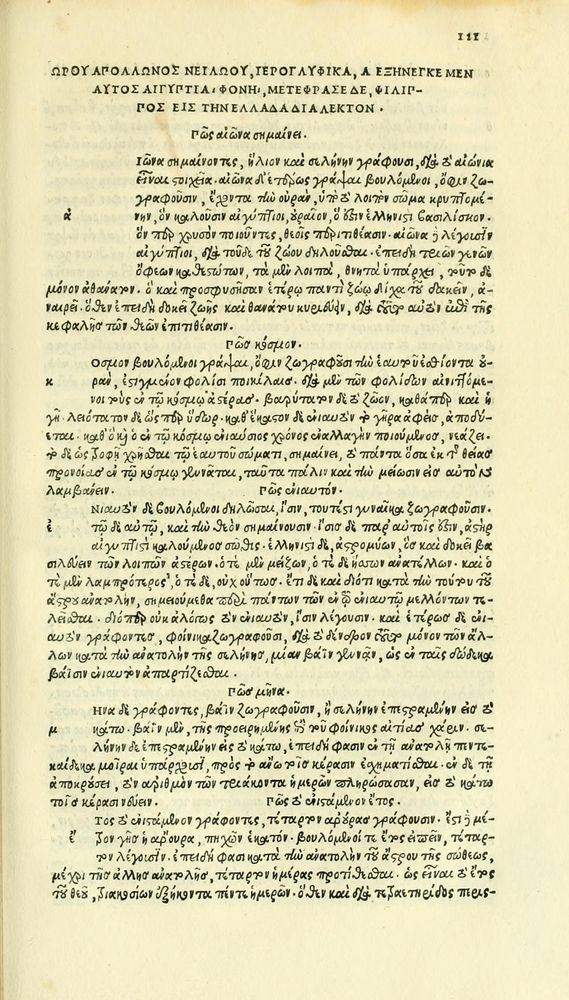 111
ΩΡΟΥ ΑΠΟΛΛΩΝΟΣ ΝΕΙΛΩΟΥ, ΙΕΡΟΓΛΥΦΙΚΑ, Α ΕΞΗΝΕΓΚΕ ΜΕΝ
ΑΥΤΟΣ ΑΙΓΥΠΤΙΑ ΦΟΝΗ, ΜΕΤΕΦΡΑΣΕ ΔΕ, ΦΙΛΙΠ-
ΠΟΣ ΕΙΣ ΤΗΝ ΕΛΛΑΔΑ ΔΙΑΛΕΚΤΟΝ.
Πῶς αἰῶνα σημαίνει.
Ἰῶνα σημαίνοντες, ἥλιον καὶ σελήνην γράφουσι, διὰ τὸ αἰώνια
εἶναι στοιχεῖα. αἰῶνα δ' ἑτέρως γράψαι βουλόμενοι, ὄφιν ζω-
γραφοῦσιν, ἔχοντα τὴν οὐρὰν, ὑπὸ τὸ λοιπὸν σῶμα κρυπτομέ-
α νην, ὃν καλοῦσιν αἰγύπτιοι, οὐραῖον, ὅ ἐστιν ἑλληνιστὶ βασιλίσκον.
ὅν περ χρυσοῦν ποιοῦντες, θεοῖς περιτιθέασιν. αἰῶνα ἢ λέγουσιν
αἰγύπτιοι, διὰ τοῦδε τοῦ ζώου δηλοῦσθαι. ἐπειδὴ τριῶν γενῶν
ὄφεων καθεστώτων, τὰ μὲν λοιπὰ, θνητὰ ὑπάρχει, τοῦτο δὲ
μόνον ἀθάνατον. ὃ καὶ προσφυσῆσαν ἑτέρῳ παντὶ ζώῳ δίχα τοῦ δακεῖν, ἀ-
ναιρεῖ. ὅθεν ἐπειδὴ δοκεῖ ζωῆς καὶ θανάτου κυριεύειν, διὰ τοῦτο αὐτὸν ἐπὶ τῆς
κεφαλῆς τῶν θεῶν ἐπιτιθέασιν.
Πῶς κόσμον.
Οσμον βουλόμενοι γράψαι, ὄφιν ζωγραφοῦσι τὴν ἑαυτοῦ ἐσθίοντα οὐ-
κ ρὰν, ἐστιγμένον φολίσι ποικίλαις. διὰ μὲν τῶν φολίδων αἰνιττόμε-
νοι τοὺς ἐν τῷ κόσμῳ ἀστέρας. βαρύτατον δὲ τὸ ζῶον, καθάπερ καὶ ἡ
γῆ. λειότατον δὲ ὥσπερ ὕδωρ. καθ' ἕκαστον δὲ ἐνιαυτὸν τὸ γῆρας ἀφεὶς, ἀποδύ-
εται. καθ' ὃ καὶ ὁ ἐν τῷ κόσμῳ ἐνιαύσιος χρόνος ἐναλλαγὴν ποιούμενος, νεάζει.
τὸ δὲ ὡς τροφῇ χρῆσθαι τῷ ἑαυτοῦ σώματι, σημαίνει, τὸ πάντα ὅσα ἐκ τῆς θείας
προνοίας ἐν τῷ κόσμῳ γεννᾶται, ταῦτα πάλιν καὶ τὴν μείωσιν εἰς αὐτὸν
λαμβάνειν. Πῶς ἐνιαυτόν.
Νιαυτὸν δὲ βουλόμενοι δηλῶσαι, ἶσιν, τουτέστι γυναῖκα ζωγραφοῦσιν.
ἐ τῷ δὲ αὐτῷ, καὶ τὴν θεὸν σημαίνουσιν. ἶσις δὲ παρ' αὐτοῖς ἐστιν, ἀστὴρ
αἰγυπτιστὶ καλούμενος σῶθις. ἑλληνιστὶ δὲ, ἀστροκύων, ὃς καὶ δοκεῖ βα
σιλεύειν τῶν λοιπῶν ἀστέρων. ὁτὲ μὲν μείζων, ὁτὲ δὲ ἥσσων ἀνατέλλων. καὶ ὁ
τὲ μὲν λαμπρότερος, ὁτὲ δὲ, οὐχ οὕτως. ἔτι δὲ καὶ διότι κατὰ τὴν τούτου τοῦ
ἄστρου ἀνατολὴν, σημειούμεθα περὶ πάντων τῶν ἐν τῷ ἐνιαυτῷ μελλόντων τε-
λεῖσθαι. διόπερ οὐκ ἀλόγως τὸν ἐνιαυτὸν, ἶσιν λέγουσιν. καὶ ἑτέρως δὲ ἐνι-
αυτὸν γράφοντες, φοίνικα ζωγραφοῦσι, διὰ τὸ δένδρον τοῦτο μόνον τῶν ἄλ-
λων κατὰ τὴν ἀνατολὴν τῆς σελήνης, μίαν βάϊν γεννᾶν, ὡς ἐν ταῖς δώδεκα
βάϊσιν ἐνιαυτὸν ἀπαρτίζεσθαι.
Πῶς μῆνα.
Ηνα δὲ γράφοντες, βάϊν ζωγραφοῦσιν, ἢ σελήνην ἐπεστραμμένην εἰς τὸ
μ κάτω. βάϊν μὲν, τῆς προειρημένης περὶ τοῦ φοίνικος αἰτίας χάριν. σε-
λήνην δὲ ἐπεστραμμένην εἰς τὸ κάτω, ἐπειδή φασιν ἐν τῇ ἀνατολῇ πεντε-
καίδεκα μοίρας ὑπάρχουσαν, πρὸς τὸ ἄνω τοῖς κέρασιν ἐσχηματίσθαι. ἐν δὲ τῇ
ἀποκρούσει, τὸν ἀριθμὸν τῶν τριάκοντα ἡμερῶν πληρώσασαν, εἰς τὸ κάτω
τοῖς κέρασι νεύειν. Πῶς τὸ ἐνιστάμενον ἔτος.
Τος τὸ ἐνιστάμενον γράφοντες, τέταρτον ἀρούρας γράφουσιν. ἔστι ἢ μέ-
ἐ τρον γῆς ἡ ἄρουρα, πηχῶν ἑκατόν. βουλόμενοί τε ἔτος εἰπεῖν, τέταρ-
τον λέγουσιν. ἐπειδή φασι κατὰ τὴν ἀνατολὴν τοῦ ἄστρου τῆς σώθεως,
μέχρι τῆς ἄλλης ἀνατολῆς, τέταρτον ἡμέρας προστίθεσθαι. ὡς εἶναι τὸ ἔτος
τοῦ θεοῦ, τριακοσίων ἑξήκοντα πέντε ἡμερῶν. ὅθεν καὶ διὰ τετραετηρίδος περισ-